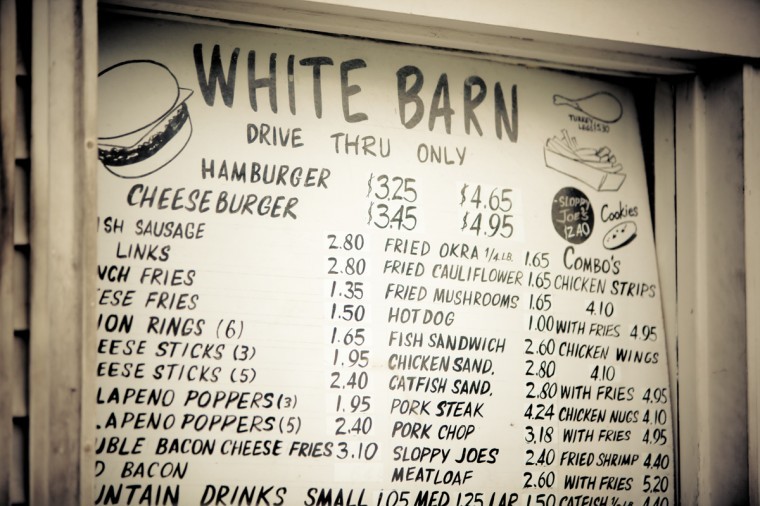 WHITE BARN
DRIVE THRU ONLY
HAMBURGER $3.25 $4.65
CHEESEBURGER $3.45 $4.95
TURKEY
SLOPPY
JOE'S
12.40
Cookies
ISH SAUSAGE 2.80
LINKS 2.80
NCH FRIES 1.35
EESE FRIES 1.50
ION RINGS (6) 1.65
EESE STICKS (3) 1.95
EESE STICKS (5) 2.40
LAPENO POPPERS (3) 1.95
LAPENO POPPERS (5) 2.40
UBLE BACON CHEESE FRIES 3.10
D BACON
FRIED OKRA 1/4 LB. 1.65
FRIED CAULIFLOWER 1.65
FRIED MUSHROOMS 1.65
HOT DOG 1.00
FISH SANDWICH 2.60
CHICKEN SAND. 2.80
CATFISH SAND. 2.80
PORK STEAK 4.24
PORK CHOP 3.18
SLOPPY JOES 2.40
MEATLOAF 2.60
COMBO'S
CHICKEN STRIPS
4.10
WITH FRIES 4.95
CHICKEN WINGS
4.10
WITH FRIES 4.95
CHICKEN NUGS 4.10
WITH FRIES 4.95
FRIED SHRIMP 4.40
WITH FRIES 5.20
CATFISH 4.40
UNTAIN DRINKS SMALL 1.05 MED 1.25 LAR 1.50